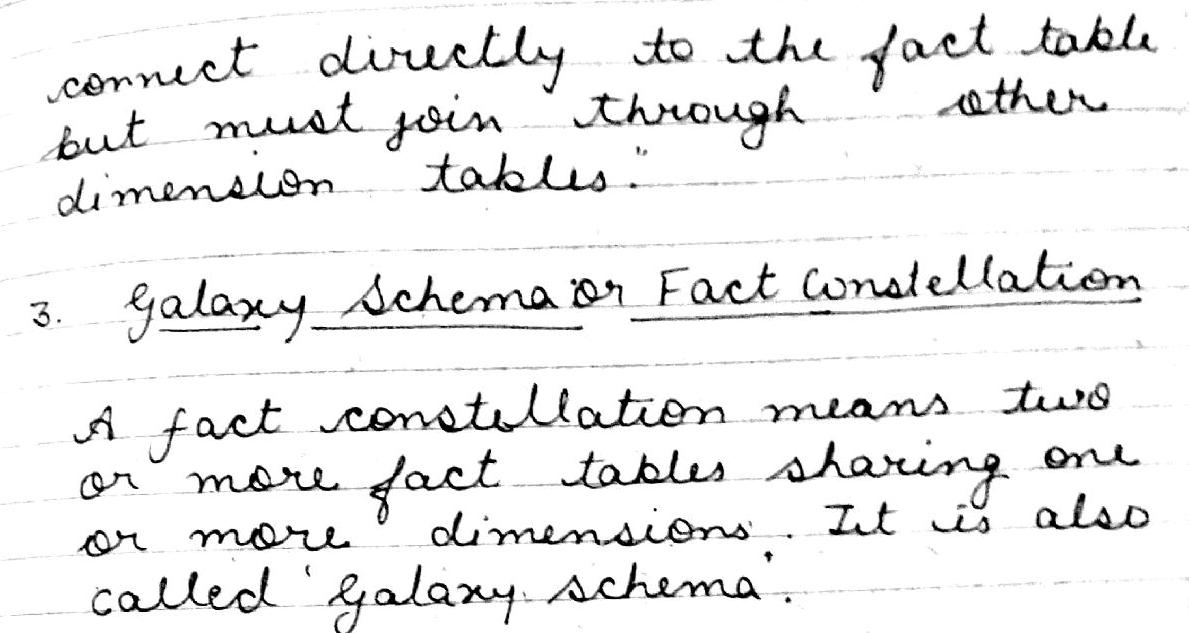 connect directly to the fact table
but must join through other
dimension tables."
3. Galaxy Schema or Fact Constellation
A fact constellation means two
or more fact tables sharing one
or more dimensions. It is also
called 'Galaxy schema'.